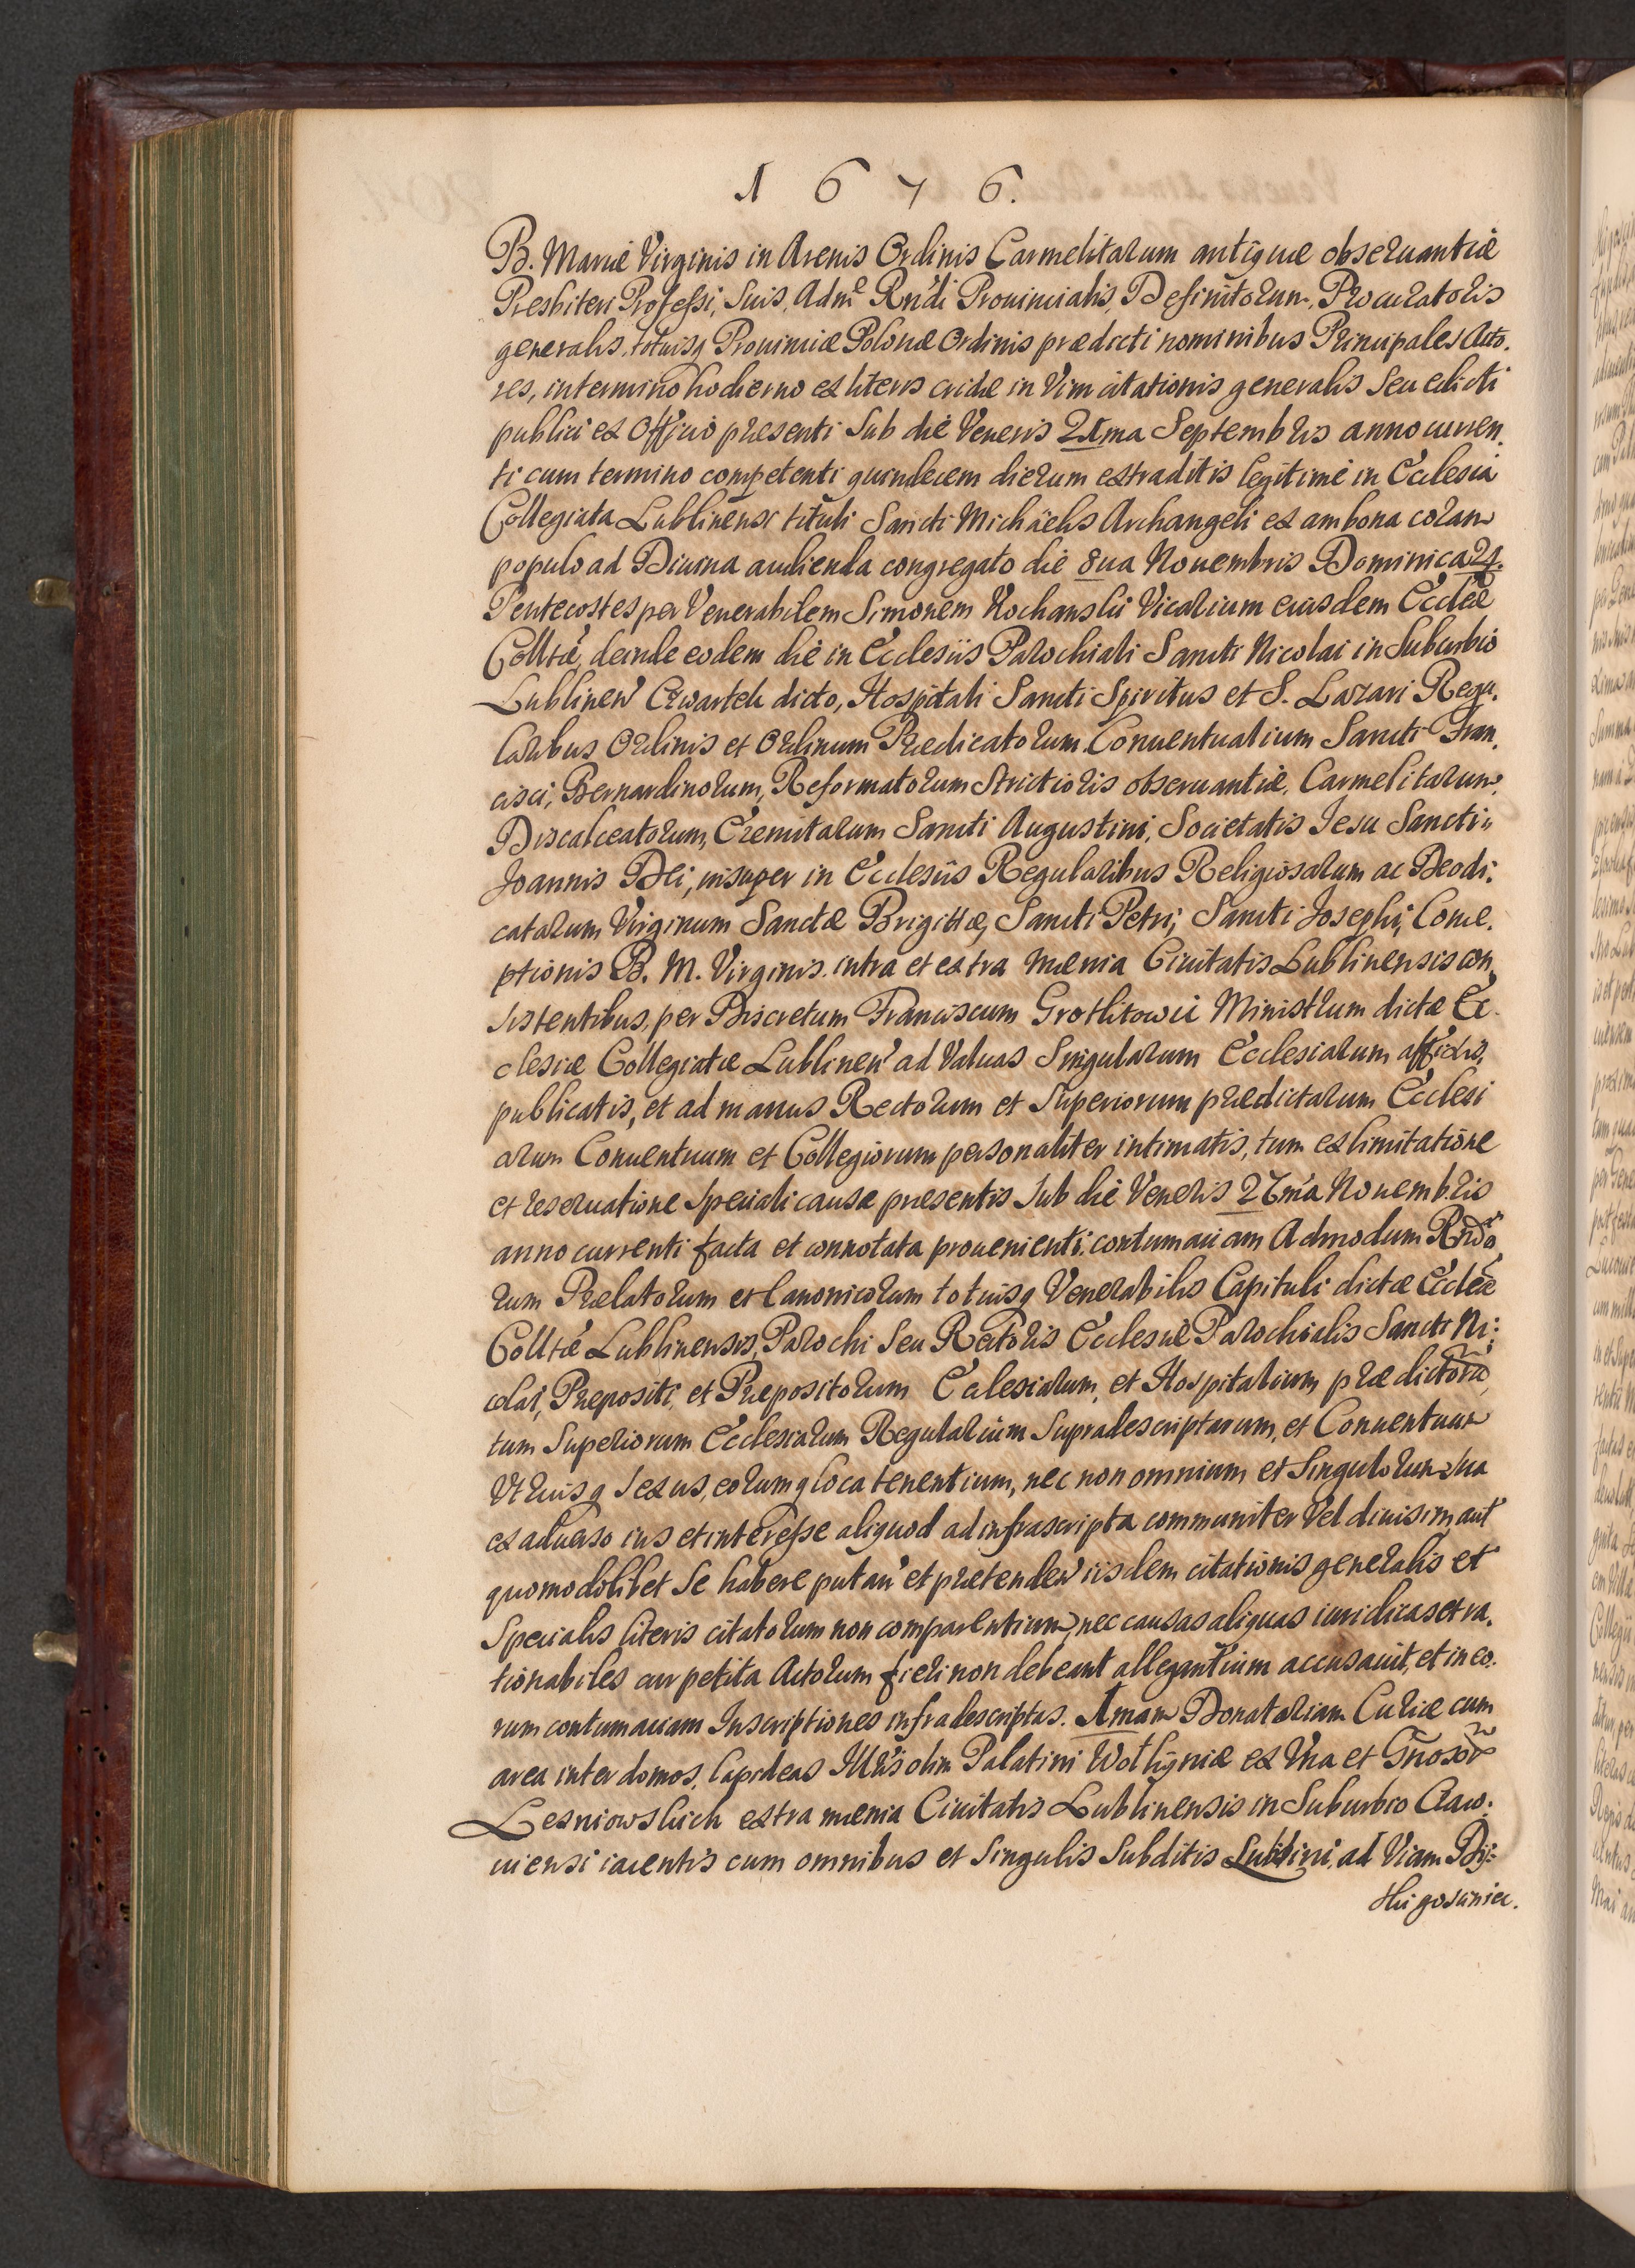 1 6 7 6.
B. Mariæ Virginis in Arenis Ordinis Carmelitarum antiquæ obseruantiæ
Presbiteri Professi, Suis, Adm̃ Rndi Prouincialis, Definitorum, Procuratoris
generalis, totiusq Prouinciæ Polonæ Ordinis prædicti nominibus Principales Acto.
res, in termino hodierno ex literis cridæ in Vim citationis generalis Seu edicti
publici ex Officio præsenti Sub die Veneris 21ma Septembris anno curren.
ti cum termino competenti quindecem dierum extraditis legitimè in Ecclesia
Collegiata Lublinensi tituli Sancti Michaelis Archangeli ex ambona coram
populo ad Diuina audienda congregato die 8ua Nouembris Dominica 24.
Pentecostes per Venerabilem Simonem Kochanskii Vicarium eiusdem Ecclæ
Colltæ, deinde eodem die in Ecclesiis Parochiali Sancti Nicolai in Suburbio
Lublinen Czwartek dicto, Hospitali Sancti Spiritus et S. Lazari Regu.
laribus Ordinis et Ordinum Prædicatorum, Conuentualium Sancti Fran.
cisci, Bernardinorum, Reformatorum Strictioris obseruantiæ, Carmelitarum,
Discalceatorum, Eremitarum Sancti Augustini, Societatis Jesu Sancti
Joannis Dei, insuper in Ecclesiis Regularibus Religiosarum ac Deodi.
catarum Virginum Sanctæ Brigittæ, Sancti Petri, Sancti Josephi, Conce.
ptionis B. M. Virginis intra et extra mænia Ciuitatis Lublinensis con
sistentibus, per Discretum Franciscum Ministrum dictæ Ec.
clesiæ Collegiatæ Lublinen ad Valuas Singularum Ecclesiarum affixis,
publicatis, et ad manus Rectorum et Superiorum prædictarum Ecclesi
arum Conuentuum et Collegiorum personaliter intimatis, tum ex limitatione
et reseruatione Speciali causæ præsentis Sub die Veneris 27ma Nouembris
anno currenti facta et connotata prouenienti, contumaciam Admodum Rndo
rum Prælatorum et Canonicorum totiusq Venerabilis Capituli dictæ Ecclæ
Colltæ Lublinensis, Parochi Seu Rectoris Ecclesiæ Parochialis Sancti Ni:
colai, Præpositi, et Præpositorum Ecclesiarum, et Hospitalium prædictorũ,
tum Superiorum Ecclesiarum Regularium Supradescriptarum, et Conuentuum
Vtriusq Sexus, eorumq loca tenentium, nec non omnium et Singulorum Sua
ex aduerso ius et interesse aliquod ad infrascripta communiter Vel diuisim aut
quomodolibet Se habere putan et prætenden iisdem citationis generalis et
Specialis literis citatorum non comparentium, nec causas aliquas iuridicas et ra.
tionabiles cur petita Actorum fieri non debeant allegantium accusauit, et in eo.
rum contumaciam Inscriptiones infradescriptas. 1mam Donatariam Curiæ cum
area inter domos, lapideas Illris olim Palatini Wołhyniæ ex Vna et Gnosor
Lesniowskich extra mænia Ciuitatis Lublinensis in Suburbio Craco:
uiensi iacentis cum omnibus et Singulis Subditis Lublini, ad Viam By: